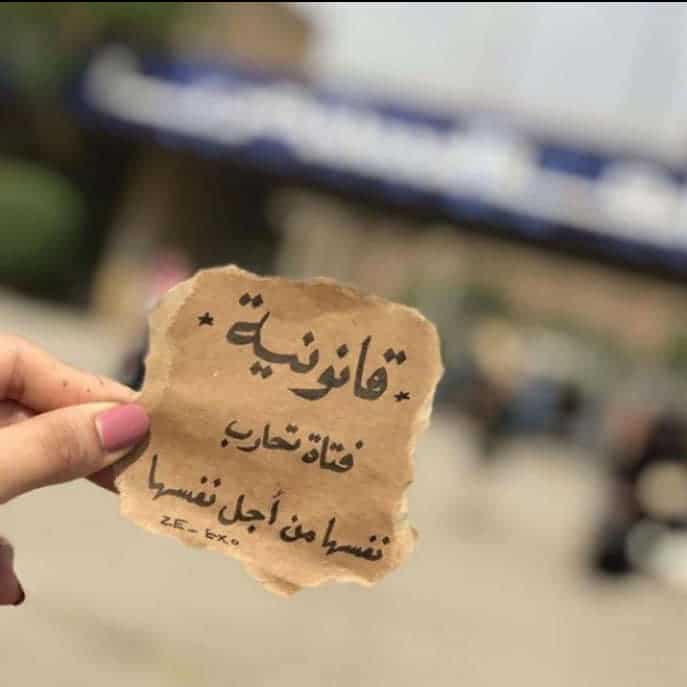 * قانونية *
فتاة تحارب
نفسها من أجل نفسها
ZE_EXO